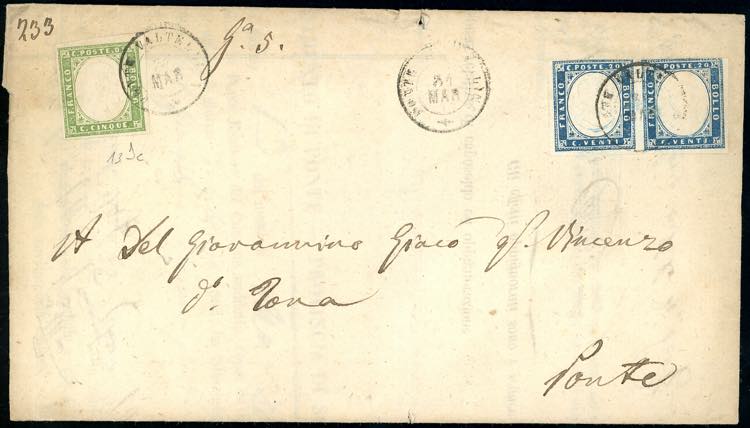 233
G.ª 5.
C. POSTE
FRANCO
C. CINQUE
VALTEL
MAR
31
MAR
C. POSTE 20
FRANCO
BOLLO
C. VENTI
C. POSTE 20
FRANCO
BOLLO
C. VENTI
A Del Giovannino Giacº qᵐ Vincenzo
Ponte